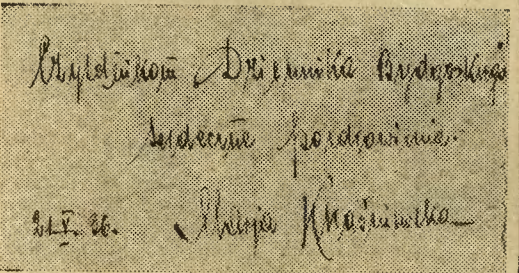 Czytelnikom „Dziennika Bydgoskiego
serdeczne pozdrowienia.
21.V.26. Marja Kwaśniewska